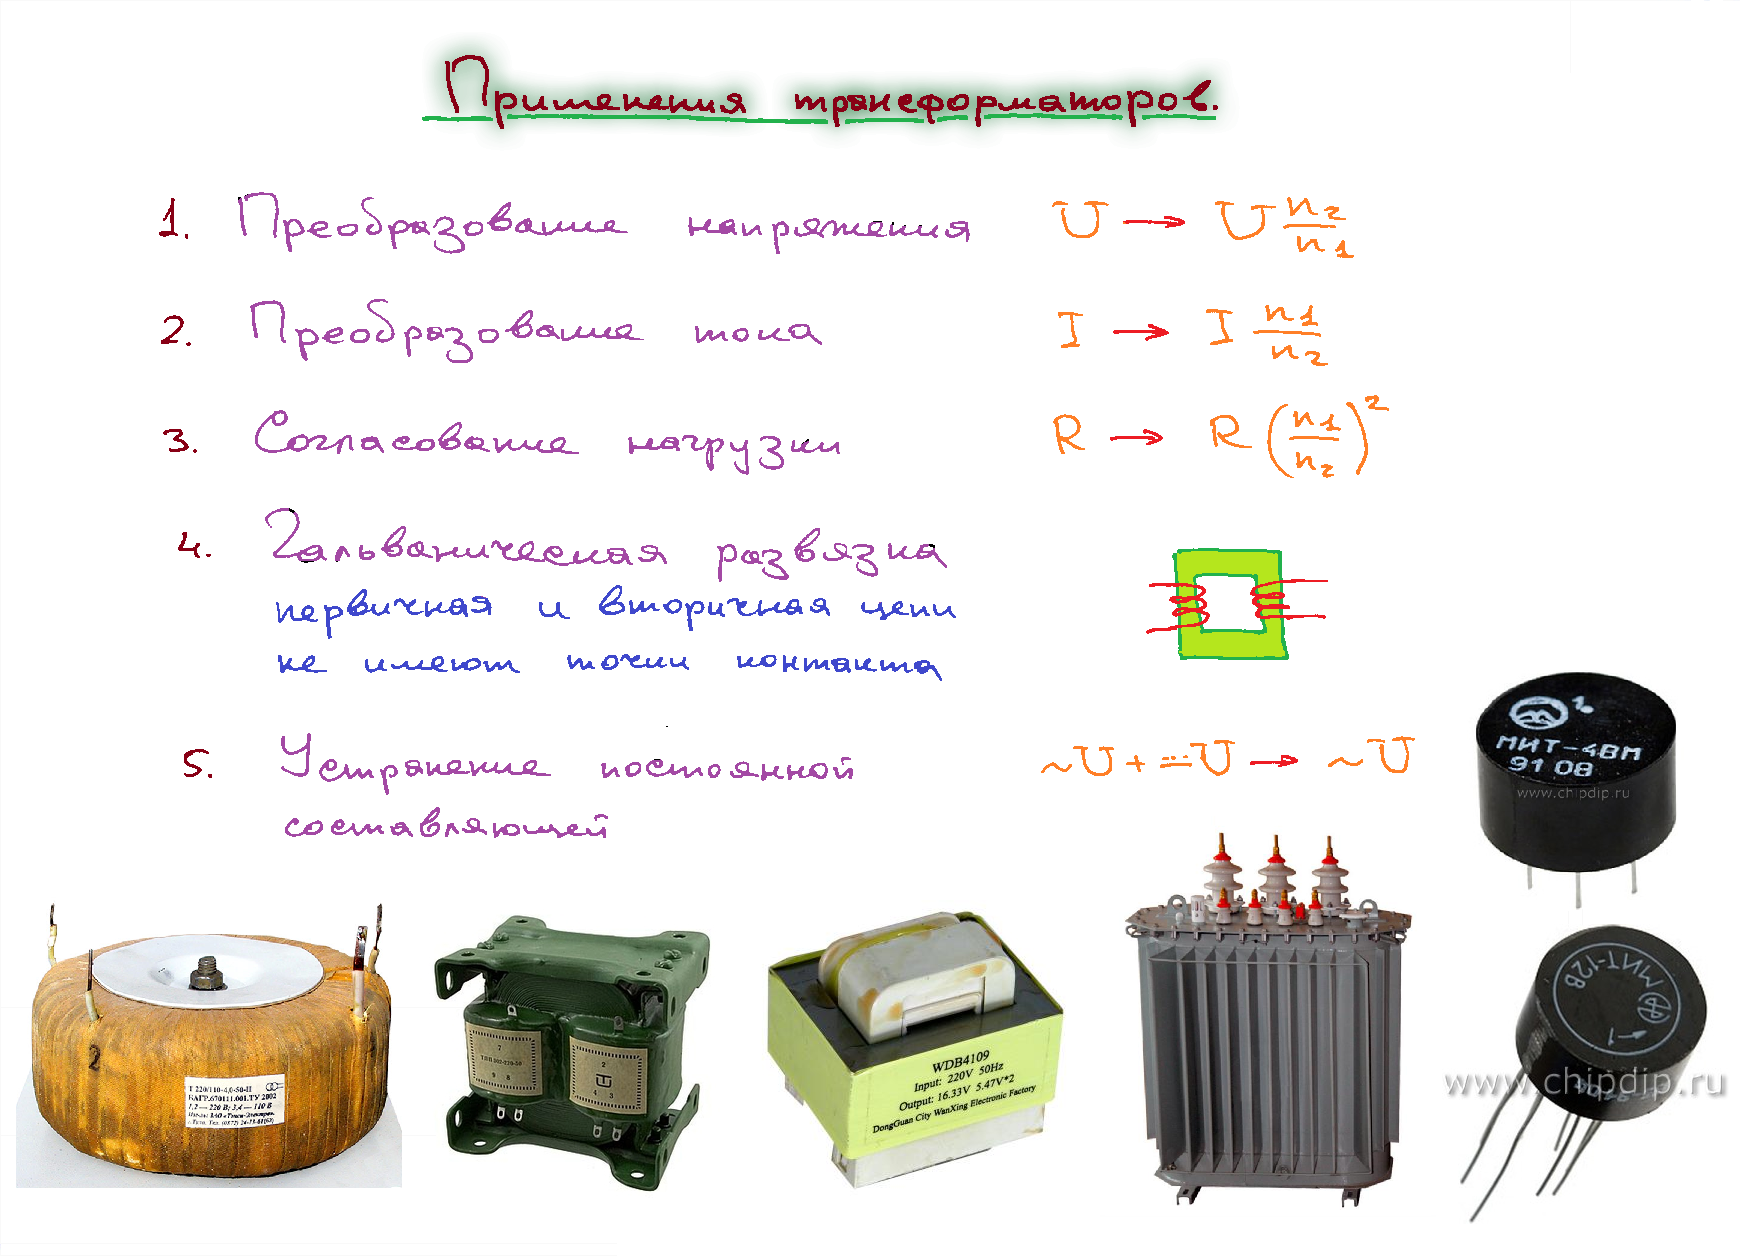 Применения трансформаторов.
1. Преобразование напряжения U → U n2/n1
2. Преобразование тока I → I n1/n2
3. Согласование нагрузки R → R (n1/n2)²
4. Гальваническая развязка
первичная и вторичная цепи
не имеют точки контакта
5. Устранение постоянной ~U + =U → ~U
составляющей
МИТ-4ВМ
9108
www.chipdip.ru
2
Т 220/110-4,0-50-П
КАГР.670111.001.ТУ 2002
1,2 — 220 В; 3,4 — 110 В
7
9 8
2
4 3
WDB4109
Input: 220V 50Hz
Output: 16.33V 5.47V*2
DongGuan City WanXing Electronic Factory
МИТ-12В
1
www.chipdip.ru